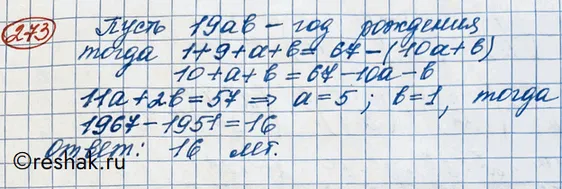 273 Пусть 19ав – год рождения
тогда 1+9+а+в = 67-(10а+в)
10+а+в = 67-10а-в
11а+2в=57 ⇒ а=5; в=1, тогда
1967-1951=16
Ответ: 16 лет.
©reshak.ru